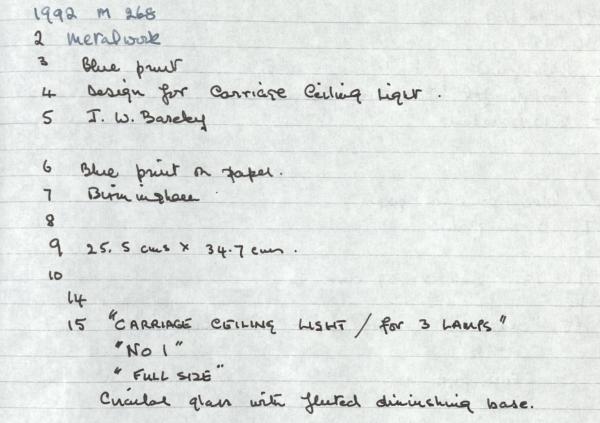 1992 M 268
2 Metalwork
3 Blue print
4 Design for Carriage Ceiling Light.
5 J. W. Bareley
6 Blue print on paper.
7 Birmingham
8
9 25.5 cms x 34.7 cms.
10
14
15 "CARRIAGE CEILING LIGHT / for 3 LAMPS"
"No 1"
"FULL SIZE"
Circular glass with fluted diminishing base.